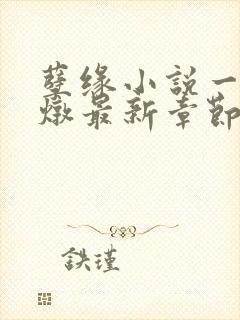 孽缘小説一
燉最新章節
鉄瑾